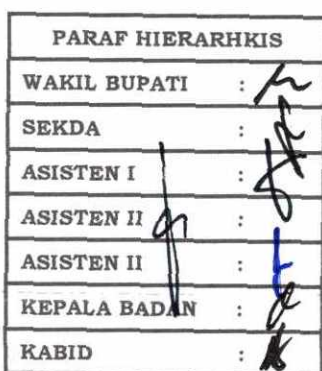 PARAF HIERARHKIS
WAKIL BUPATI :
SEKDA :
ASISTEN I :
ASISTEN II :
ASISTEN II :
KEPALA BADAN :
KABID :